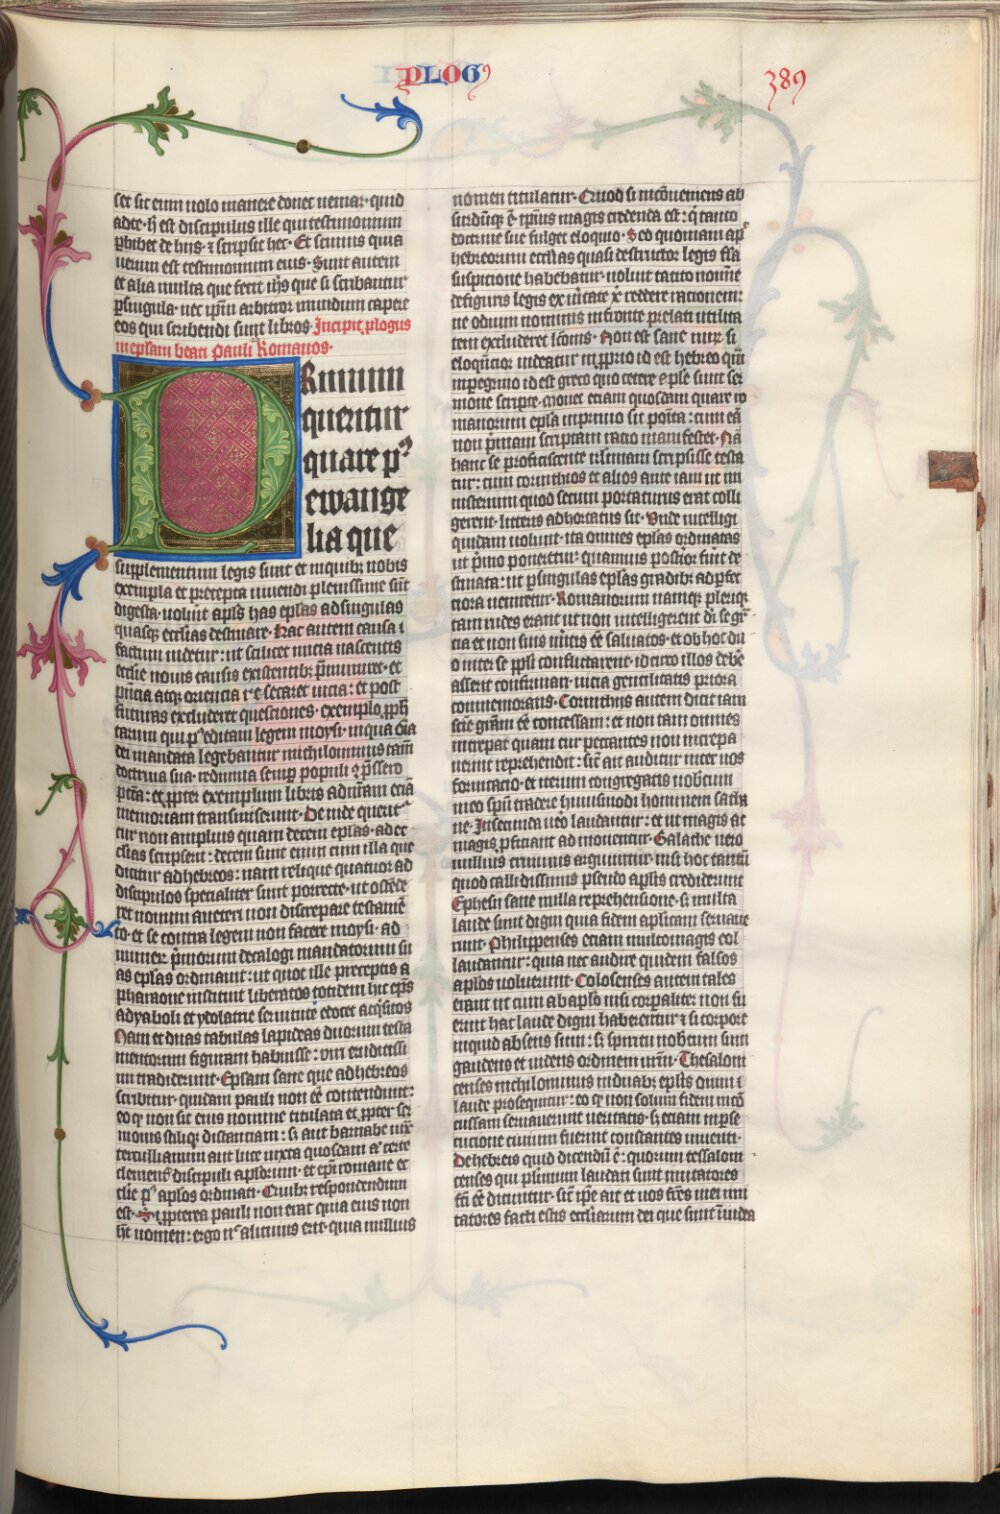 PLOGꝰ
389
set sic eum uolo manere donec veniaʒ· quid
adte· hˀ est discipulus ille qui testimonium
ꝑhibet de hijs· ⁊ scripsit hec· Et scimus quia
uerum est testimonium eius· Sunt autem
et alia multa que fecit ih̄s que si scribantur
ꝑsingula· nec ip̄m arbitror mundum capere
eos qui scribendi sunt libros· Incipit ꝓlogus
in ep̄sam beati Pauli Romanos·
PRimum
queritur
quare pꝰ
ewange
lia que
supplementum legis sunt et inquibꝫ nobis
exempla et precepta uiuendi plenissime sūt
digesta· uoluit apl̄s has ep̄las ad singulas
quasqꝫ ecclīas destinare· Hac autem causa ī
factum uidetur: ut scilicet inicia nascentis
eccl̄ie nouis causis existentibꝫ p̄muniret· et
p̄ntia atqꝫ oriencia resecaret uicia: et post
futuras excluderet questiones· exemplo ꝓph̄
tarum qui pꝰ editam legem moysi· inqua oīa
dei mandata legebantur nichilominus tam̄
doctrina sua· rediuiua semꝑ populi ꝯp̄ssero
pctā: et ꝓpter exemplum libris adnr̄am eciā
memoriam transmiserunt· Deinde querit᷑
cur non amplius quam decem ep̄las· ad ec
clīas scripserit: decem sunt enim cum illa que
dicitur ad hebreos: nam relique quatuor ad
discipulos specialiter sunt porrecte· ut ostēde
ret nouum aueteri non discrepare testamē
to· et se contra legem non facere moysi· ad
numeꝝ p̄morum decalogi mandatorum su
as ep̄las ordinauit: ut quot ille preceptis a
pharaone instituit liberatos totidem hic ep̄is
adyaboli et ydolatrie seruitute edocet acq̄sitos
Nam et duas tabulas lapideas duorum testa
mentorum figuram habuisse: viri eruditissi
mi tradiderunt· Ep̄lam sane que ad hebreos
scribitur· quidam pauli non eē contendunt:
eo qꝫ non sit eius nomine titulata et ꝓpter ser
monis stiliqꝫ distanciam: sꝫ aut barnabe iux̄
tercullianum aut luce iuxta quosdam aˀ certe
clementꝭ discipuli apl̄orum· et ep̄i romane ec
clīe pꝰ apl̄os ordinati· Quibꝫ respondendum
est· Si ꝓpterea pauli non erat quia eius non
h̄t nomen: ergo nˀ alicuius erit· quia nullius
nomen titulatur· Quod si incōueniens ab
surdūqꝫ ē· ip̄ius magis credenda est: q̄ tanto
doctrine sue fulget eloquio· Sed quoniam apˀ
hebreorum ecclīas quasi destructor legis fl̄a
suspicione habebatur· uoluit tacito nomīe
de figuris legis ex ūitate x̄ reddere racionem:
ne odium nominis infronte prelati utilita
tem excluderet lc̄onis· Non est sane miꝝ si
eloquēcior uideatur inꝓprio id est hebreo quā
inꝑegrino id est greco quo cetere ep̄le sunt ser
mone scripte· Mouet eciam quosdam quare ro
manorum ep̄la inprimo sit poīta: cum eā
non p̄mitam scriptam racio manifestet· Nā
hanc se proficiscente ihr̄usalem scripsisse testa
tur: cum corinthios et alios ante iam ut mi
nisterium quod secum portaturus erat colli
gerent· litteris adhortatus sit· Unde intelligi
quidam uolunt· ita omnes ep̄las ordinatas
ut p̄mo poneretur· quamuis postˀor fuīt de
stinata: ut ꝑsingulas ep̄las gradibꝫ adꝑfec
ciora ueniretur· Romanorum namqꝫ pleriqꝫ
tam rudes erant ut non intelligerent dī se gr̄
cia et non suis m̄itis eē saluatos· et ob hoc du
o inter se pp̄li conflictarent· idcirco illos debē
asserit confirmari· uicia gentilitatis priora
commemorans· Corinthijs autem dicit iam
scīe gr̄am eē concessam: et non tam omnes
increpat quam cur peccantes non increpa
uerint reprehendit: sic̄ ait auditur inter uos
fornicacio· et iterum congregatis uobiscum
meo sp̄u tradere huiusmodi hominem satha
ne· Insecunda ūeo laudantur: et ut magis ac
magis ꝓficiant ad mouentur· Galathe uero
nullius criminis arguuntur· nisi hoc tantū
quod callidissimis pseudo apl̄is crediderunt
Ephesij sane nulla reprehensione· sꝫ multa
laude sunt digni quia fidem apl̄icam seruaue
runt· Philippenses eciam multomagis col
laudantur: quia nec audire quidem falsos
apl̄os uoluerunt· Colosenses autem tales
erant ut cum ab apl̄o uisi corꝑaliteꝝ non fu
erint hac laude digni haberentur ⁊ si corpore
inquid absens sum: sꝫ spiritu uobiscum sum
gaudens et uidens ordinem ur̄m· Thesaloni
censes nichilominus induabꝫ ep̄lis omni ī
laude prosequitur: eo qꝫ non solum fidem incō
cussam seruauerunt ueritatis· sꝫ eciam inꝑse
cucione ciuium fuerunt constantes inuenti·
De hebreis quid dicendū ē: quorum tessaloni
censes qui plurimum laudati sunt imitatores
fc̄i eē dicuntur· sic̄ ip̄e ait et uos fr̄es mei imi
tatores facti estis eccl̄iarum dei que sunt īiudea